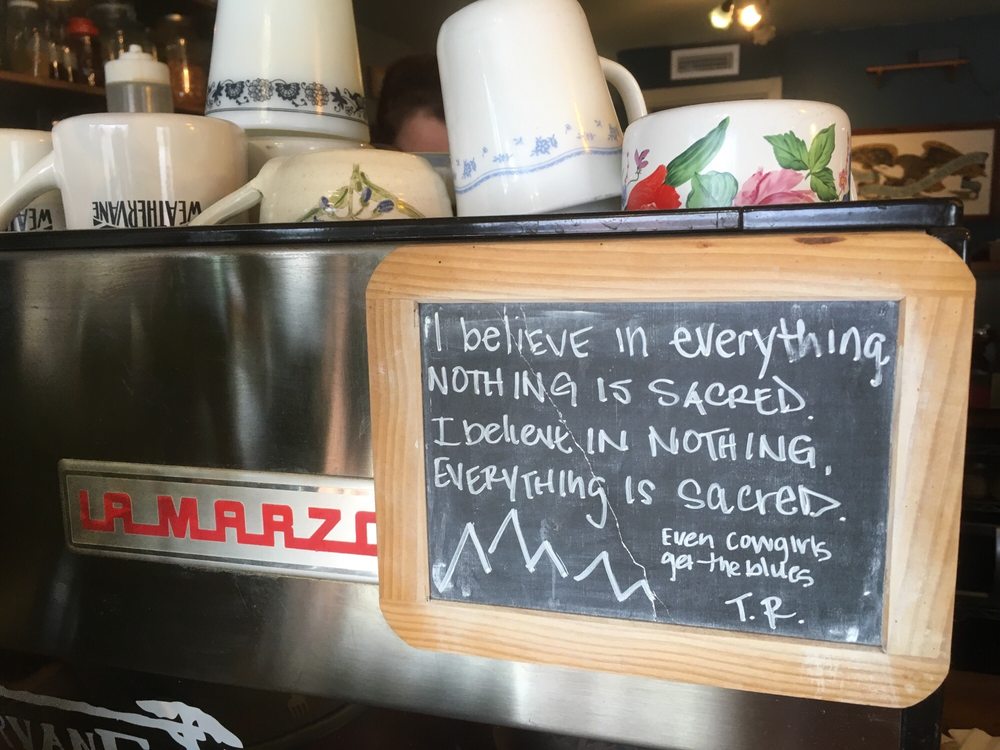 WEATHERVANE
I believe in everything,
NOTHING IS SACRED.
I believe IN NOTHING,
EVERYTHING IS SacreD.
Even cowgirls
get the blues
T.R.
LA MARZO
RVANE